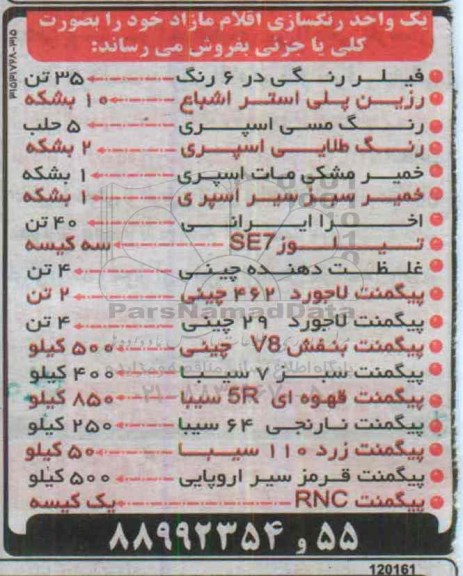 یک واحد رنگسازی اقلام مازاد خود را بصورت
کلی یا جزئی بفروش می رساند:
فیلر رنگی در ۶ رنگ ۳۵ تن
رزین پلی استر اشباع ۱۰ بشکه
رنگ مسی اسپری ۵ حلب
رنگ طلایی اسپری ۲ بشکه
خمیر مشکی مات اسپری ۱ بشکه
خمیر سبز سیر اسپری ۱ بشکه
اخرا ایرانی ۴۰ تن
تیلوز SE7 سه کیسه
غلظت دهنده چینی ۴ تن
پیگمنت لاجورد ۴۶۲ چینی ۲ تن
پیگمنت لاجورد ۲۹ چینی ۴ تن
پیگمنت بنفش V8 چینی ۵۰۰ کیلو
پیگمنت سبز ۷ سیبا ۴۰۰ کیلو
پیگمنت قهوه ای 5R سیبا ۸۵۰ کیلو
پیگمنت نارنجی ۶۴ سیبا ۲۵۰ کیلو
پیگمنت زرد ۱۱۰ سیبا ۵۰ کیلو
پیگمنت قرمز سیر اروپایی ۵۰۰ کیلو
پیگمنت RNC یک کیسه
۸۸۹۹۲۳۵۴ و ۵۵
120161
ParsNamadData